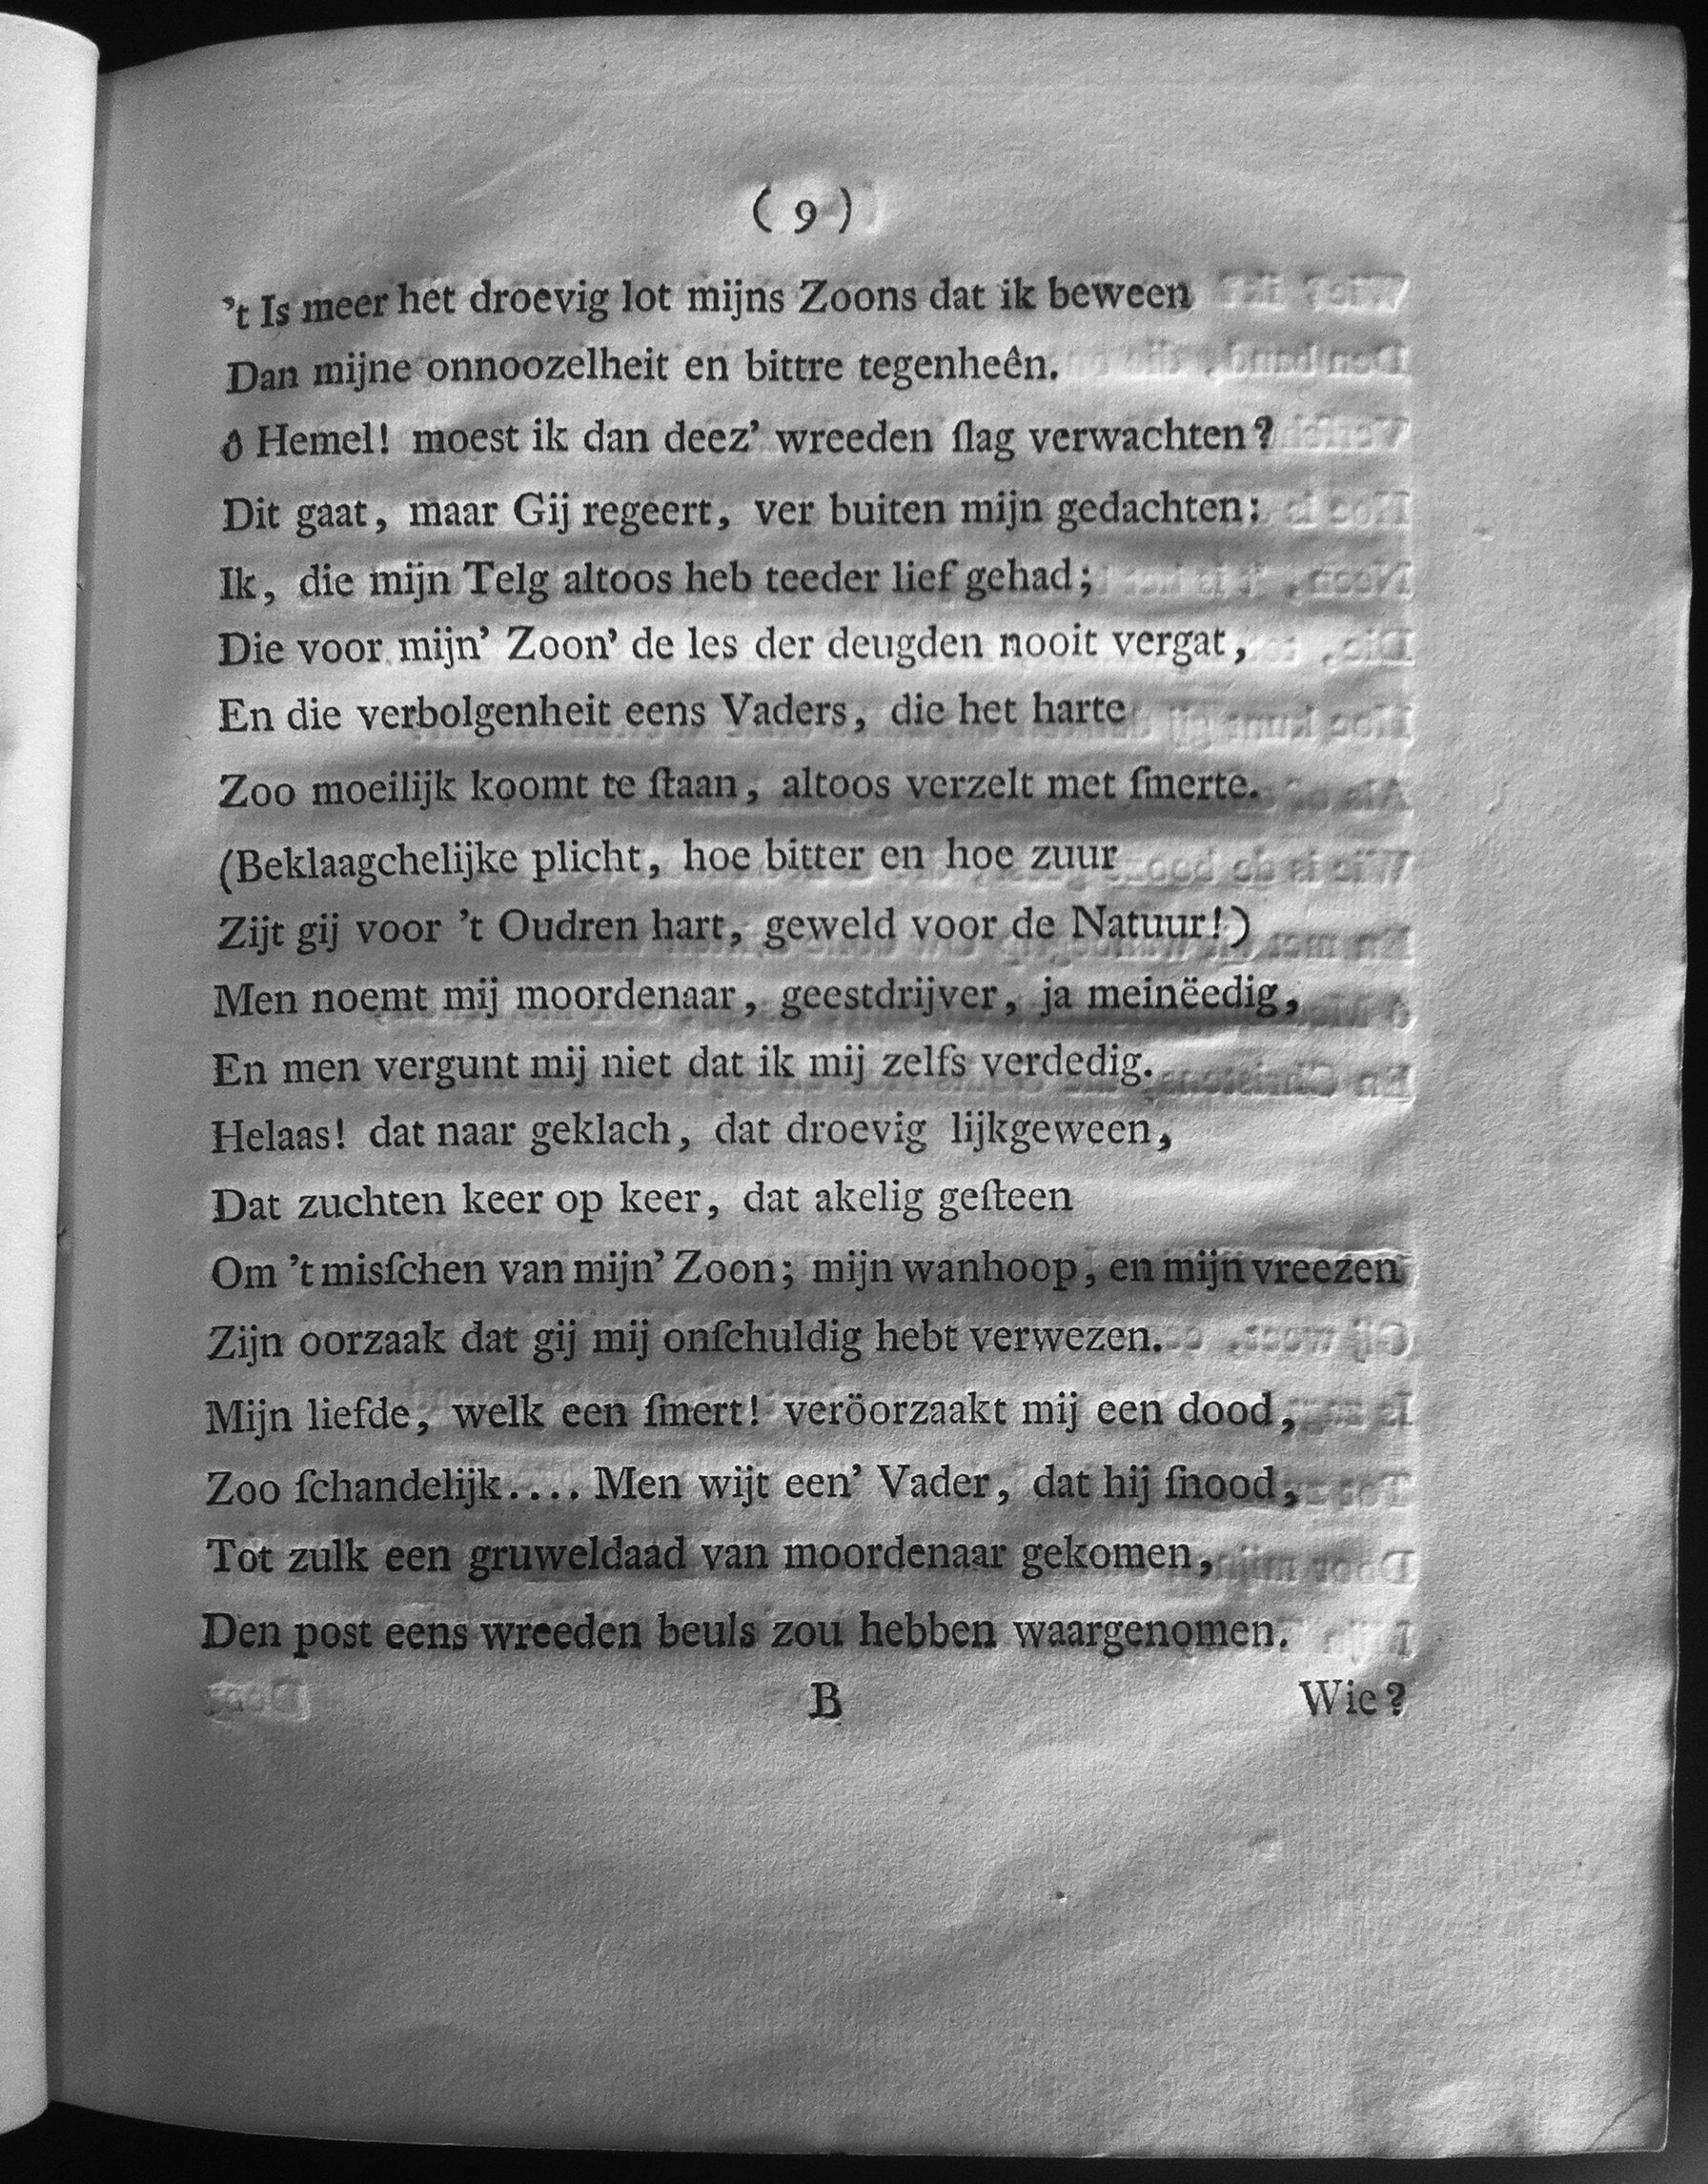 ( 9 )
’t Is meer het droevig lot mijns Zoons dat ik beween
Dan mijne onnoozelheit en bittre tegenheên.
ô Hemel! moest ik dan deez’ wreeden ſlag verwachten?
Dit gaat, maar Gij regeert, ver buiten mijn gedachten:
Ik, die mijn Telg altoos heb teeder lief gehad;
Die voor mijn’ Zoon’ de les der deugden nooit vergat,
En die verbolgenheit eens Vaders, die het harte
Zoo moeilijk koomt te ſtaan, altoos verzelt met ſmerte.
(Beklaagchelijke plicht, hoe bitter en hoe zuur
Zijt gij voor ’t Oudren hart, geweld voor de Natuur!)
Men noemt mij moordenaar, geestdrijver, ja meinëedig,
En men vergunt mij niet dat ik mij zelfs verdedig.
Helaas! dat naar geklach, dat droevig lijkgeween,
Dat zuchten keer op keer, dat akelig geſteen
Om ’t misſchen van mijn’ Zoon; mijn wanhoop, en mijn vreezen
Zijn oorzaak dat gij mij onſchuldig hebt verwezen.
Mijn liefde, welk een ſmert! veröorzaakt mij een dood,
Zoo ſchandelijk.... Men wijt een’ Vader, dat hij ſnood,
Tot zulk een gruweldaad van moordenaar gekomen,
Den post eens wreeden beuls zou hebben waargenomen.
B Wie?